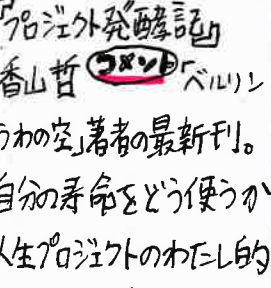 『プロジェクト発酵記』
香山哲 コメント「ベルリン
うわの空」著者の最新刊。
自分の寿命をどう使うか
人生プロジェクトのわたし的